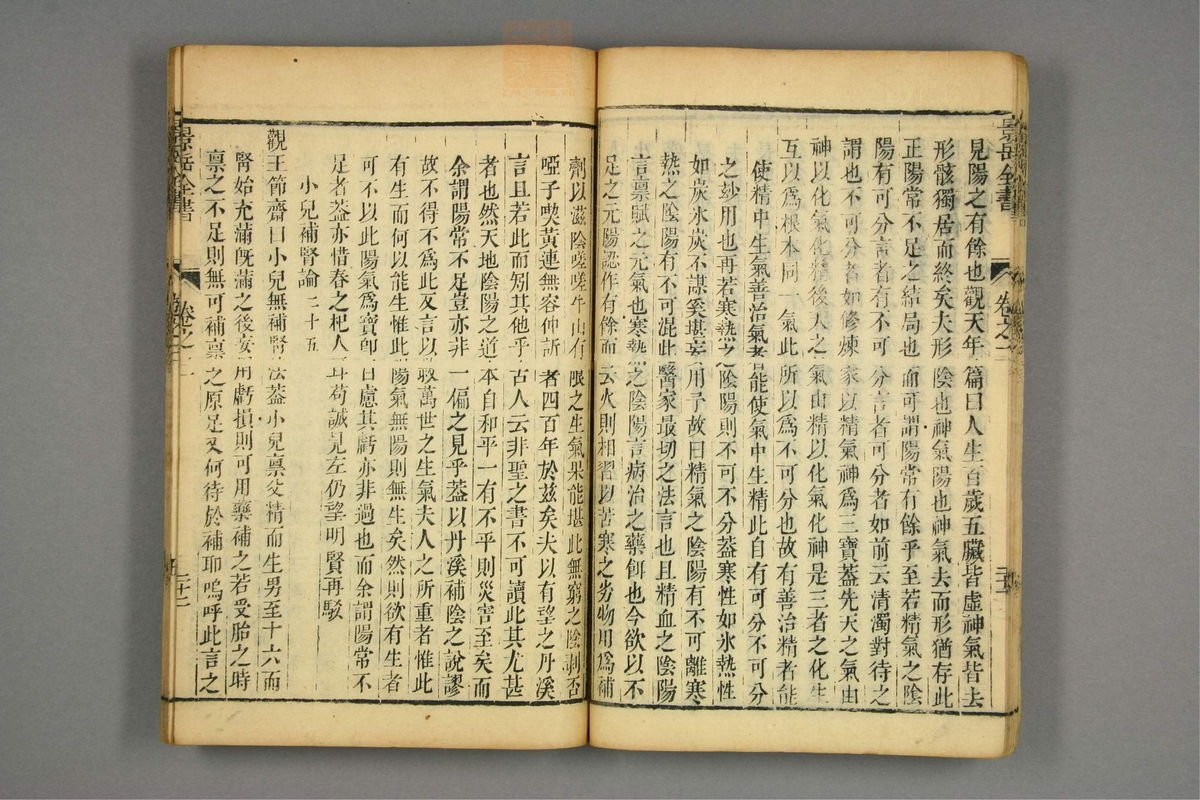 見陽之有餘也觀天年篇曰人生百歲五臟皆虛神氣皆去
形骸獨居而終矣夫形陰也神氣陽也神氣去而形猶存此
正陽常不足之結局也而可謂陽常有餘乎至若精氣之陰
陽有可分言者有不可分言者可分者如前云清濁對待之
謂也不可分者如修煉家以精氣神爲三寶蓋先天之氣由
神以化氣化精後天之氣由精以化氣化神是三者之化生
互以爲根本同一氣此所以爲不可分也故有善治精者能
使精中生氣善治氣者能使氣中生精此自有可分不可分
之妙用也再若寒熱之陰陽則不可不分蓋寒性如氷熱性
如炭氷炭不謀奚堪妄用予故曰精氣之陰陽有不可離寒
熱之陰陽有不可混此醫家最切之法言也且精血之陰陽
言禀賦之元氣也寒熱之陰陽言病治之藥餌也今欲以不
足之元陽認作有餘而云火則相習以苦寒之劣物用爲補
劑以滋陰嗟嗟牛山有限之生氣果能堪此無窮之陰剥否
啞子喫黃連無容伸訴者四百年於玆矣夫以有望之丹溪
言且若此而矧其他乎古人云非聖之書不可讀此其尤甚
者也然天地陰陽之道本自和平一有不平則災害至矣而
余謂陽常不足豈亦非一偏之見乎蓋以丹溪補陰之說謬
故不得不爲此反言以救萬世之生氣夫人之所重者惟此
有生而何以能生惟此陽氣無陽則無生矣然則欲有生者
可不以此陽氣爲寶卽日慮其虧亦非過也而余謂陽常不
足者蓋亦惜春之杞人耳苟誠見左仍望明賢再駁
小兒補腎論 二十五
觀王節齋曰小兒無補腎法蓋小兒禀父精而生男至十六而
腎始充滿旣滿之後妄用虧損則可用藥補之若受胎之時
禀之不足則無可補禀之原足又何待於補耶嗚呼此言之
景岳全書
卷之二
景岳全書
卷之二